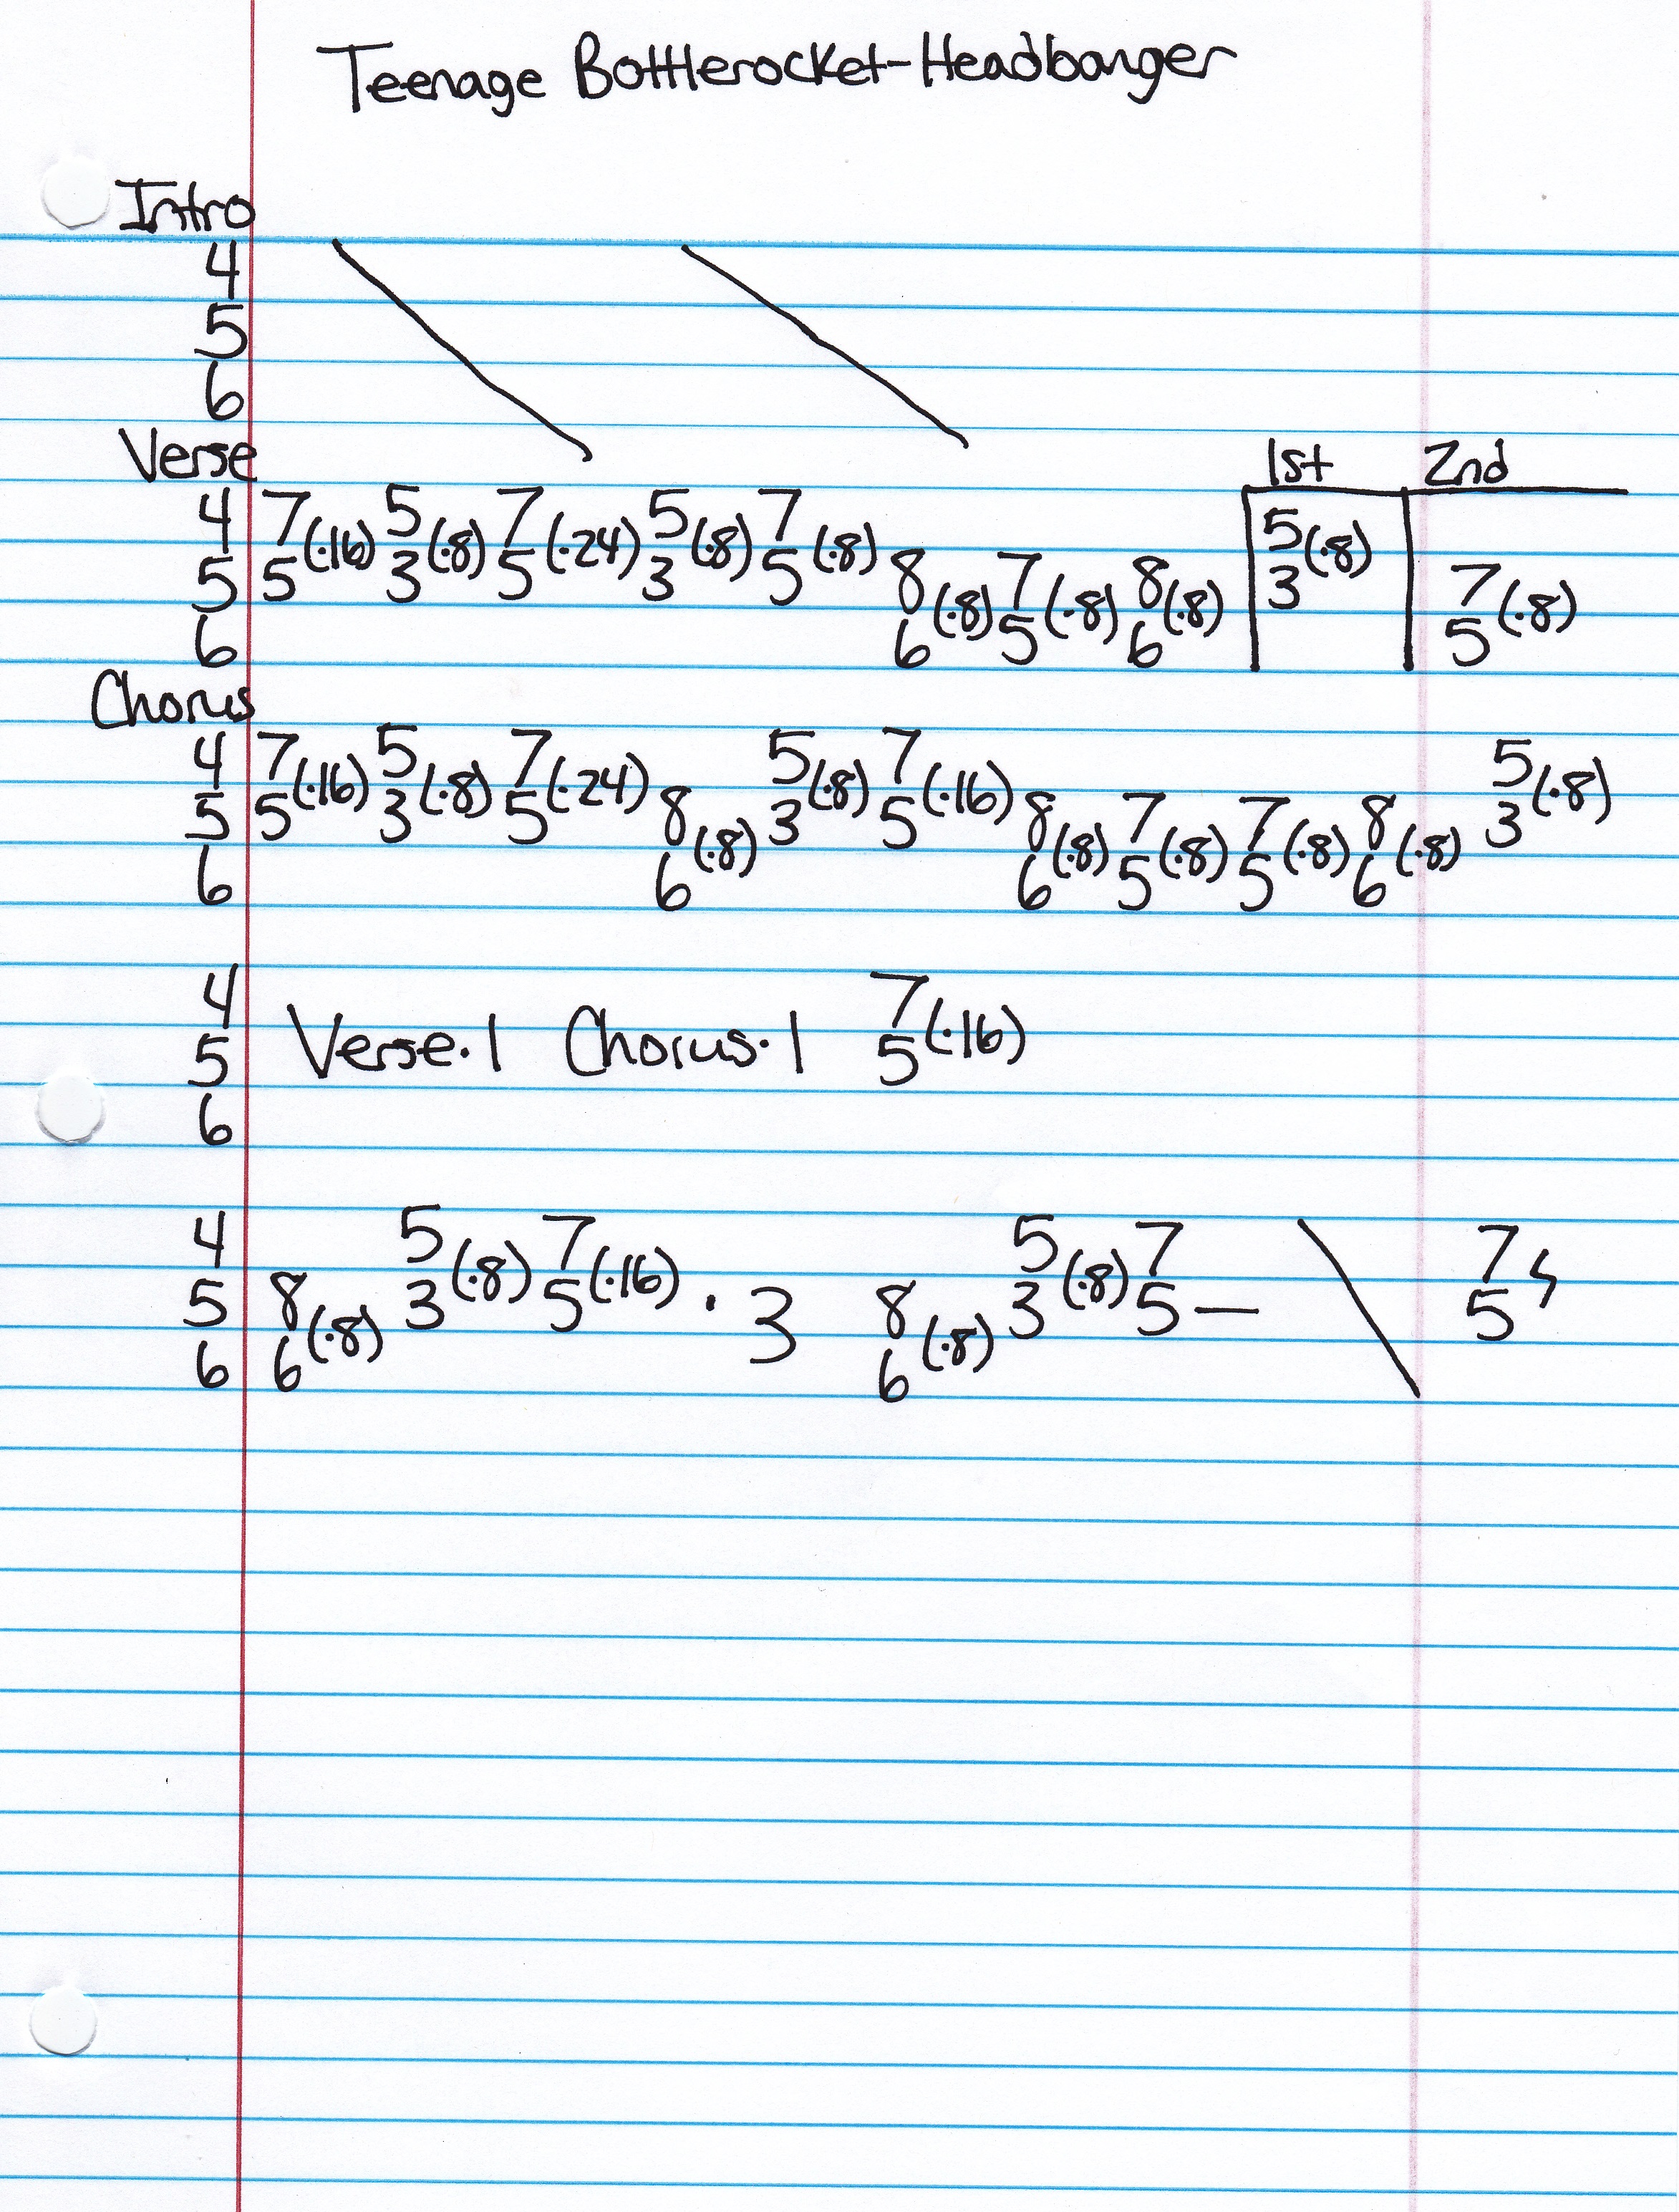 Teenage Bottlerocket-Headbanger
Intro
4
5
6
Verse 1st 2nd
4 7 5 7 5 7 5
(·16) (·8) (·24) (·8) (·8) (·8)
5 5 3 5 3 5 8 7 8 3 7
(·8) (·8) (·8) (·8)
6 6 5 6 5
Chorus
4 7 5 7 5 7 5
(·16) (·8) (·24) (·8) (·16) (·8)
5 5 3 5 8 3 5 8 7 7 8 3
(·8) (·8) (·8) (·8) (·8)
6 6 6 5 5 6
4 7
5 Verse·1 Chorus·1 5 (·16)
6
4 5 7 5 7 7
(·8) (·16) (·8)
5 8 3 5 · 3 8 3 5 — 5
(·8) (·8)
6 6 6